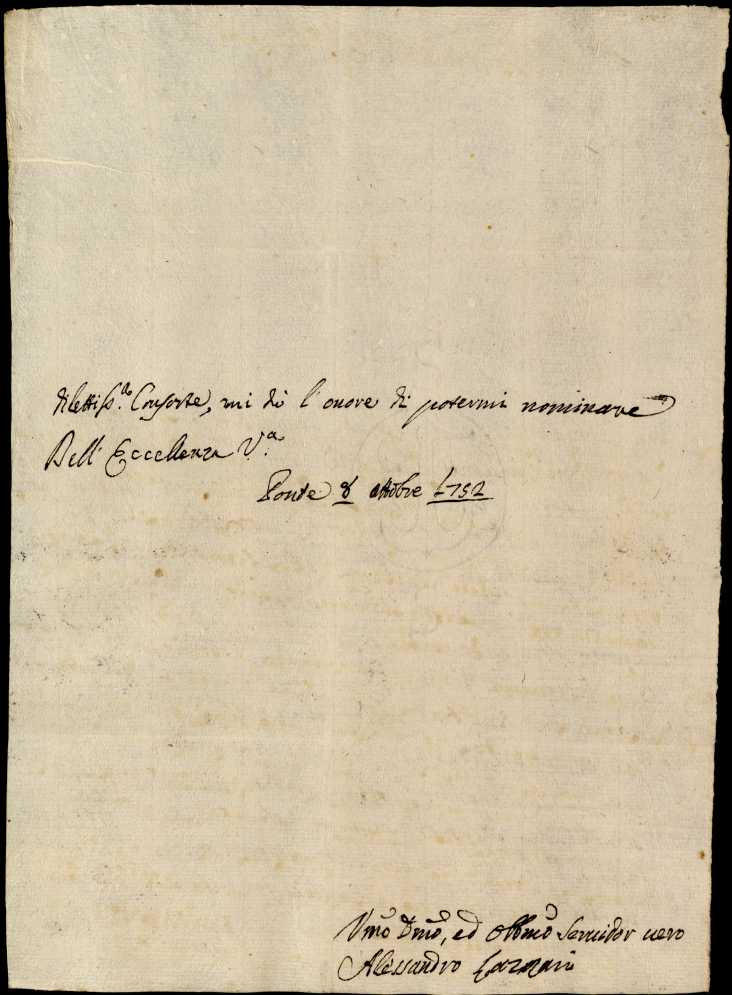 dilettiss.ª Consorte, mi dò l'onore di potermi nominare
Dell'Eccellenza V.ª
Ponte 8 ottobre 1752
Vmo Dmo, ed Obbmo Servidor vero
Alessandro